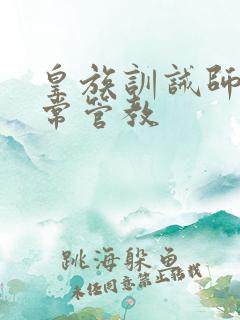 皇族訓誡師日
常管教
跳海躲魚
未经同意禁止转载